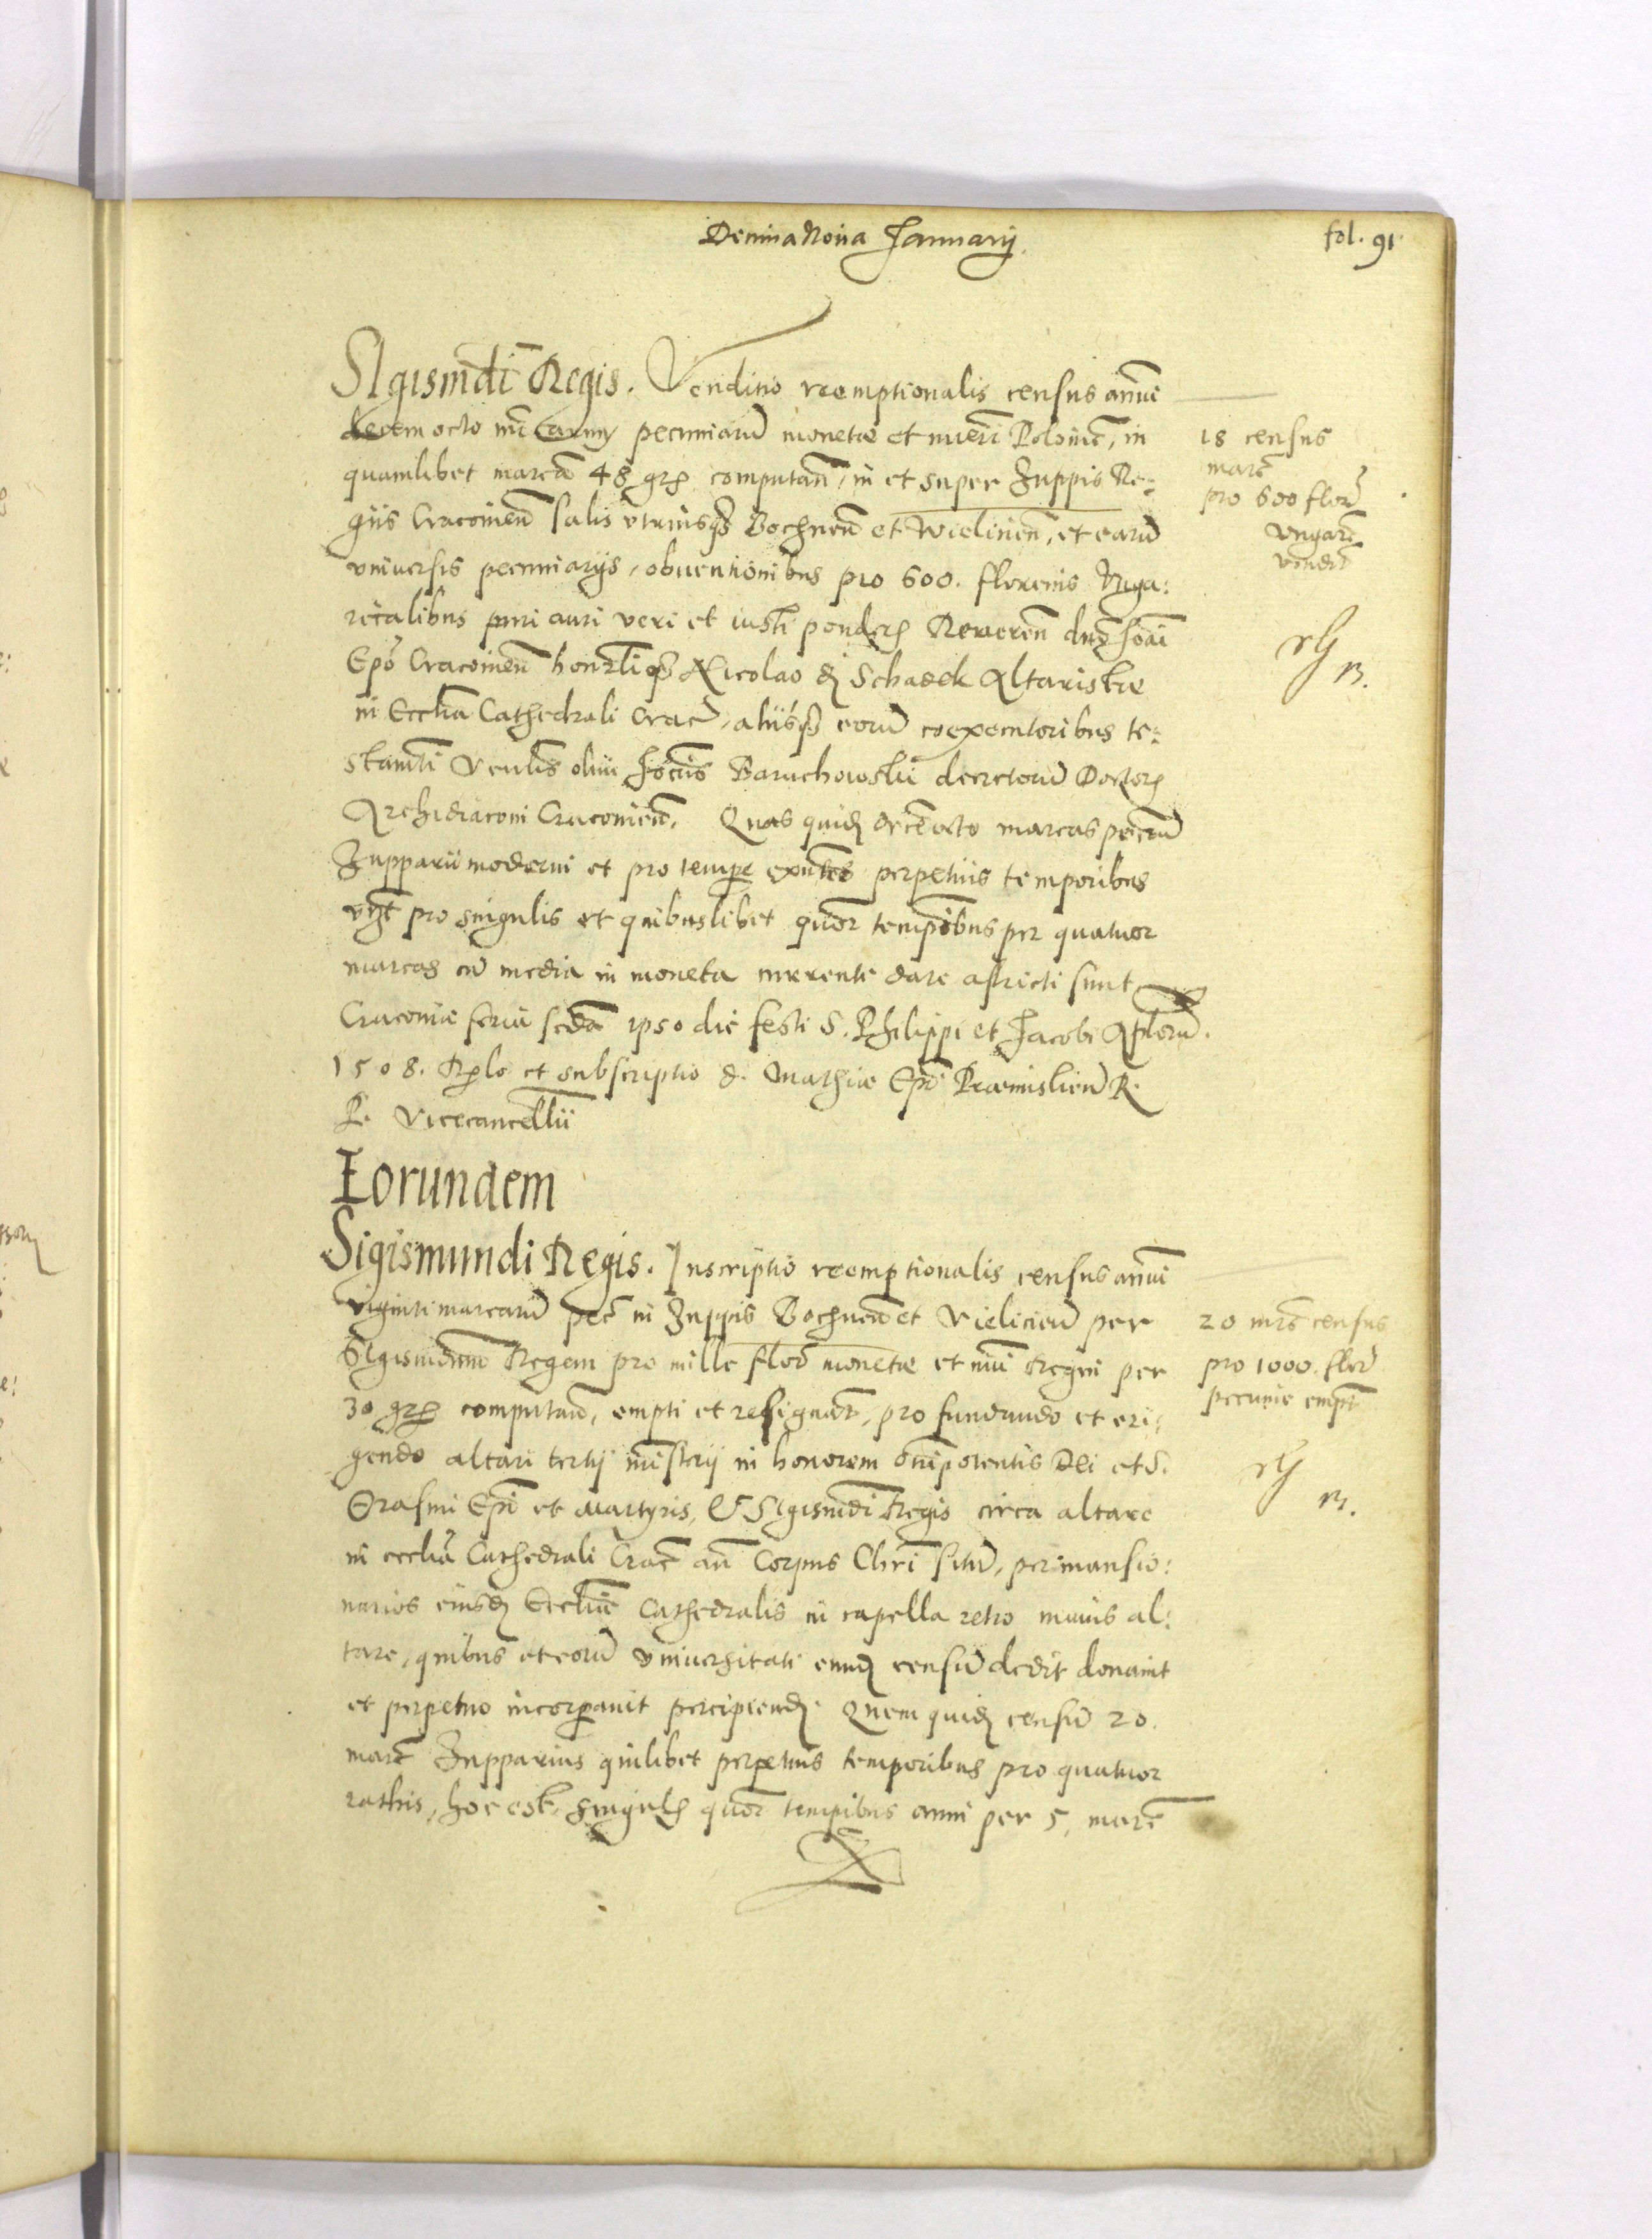 Decima Nona Januarij.
fol. 91.
SIgismūdi Regis. Venditio reemptionalis census annui
decem octo marcarum pecuniarū monetæ et nūeri Poloniē, in
quamlibet marcā 48 gros computań, in et super Zuppis Re:
giis Cracovień Salis utriusq Bochneń et Wielicień, et earū
universis pecuniarijs, obventionibus pro 600. florenis Unga:
ricalibus puri auri veri et iusti ponderis Reveren dno Joāni
Epō Cracovień honliq Nicolao de Schadek Altaristæ
in Ecclīa Cathedrali Crac, aliisq eorū coexecutoribus te:
stamti Venlis olim Jocūs Baruchowski decretorū Doctoris
Archidiaconi Cracovień, Quas quidē decēocto marcas pecūū
Zupparii moderni et pro tempore exntes perpetuis temporibus
vizt pro singulis et quibuslibet quor tempōbus per quatuor
marcas cū media in moneta currente dare astricti sunt
Cracoviæ feria scda ipso die festi S. Philippi et Jacobi Aplorū.
1508. Rlo et subscriptio d. Mathiæ Epi Præmislień R.
P. Vicecancellii
Eorundem
Sigismundi Regis. Inscriptio reemptionalis census annui
viginti marcarū pec in Zuppis Bochneń et Vielicień per
SIgismdum Regem pro mille flor monetæ et nūi Regni per
30 gros computań, empti et resignat, pro fundando et eri:
gendo altari tertij misterij in honorem omipotentis Dei et S.
Erasmi Epi et Martyris, & SIgismūdi Regis circa altare
in ecclīa Cathedrali Crac añ Corpus Chri situ, per mansio:
narios eiusdē Eccliæ Cathedralis in capella retro maius al:
tare, quibus et eorū Universitati eundē censū dedit donavit
et perpetuo incorporavit percipiendē. Quem quidē censū 20.
marc Zupparius quilibet perpetuis temporibus pro quatuor
rathis, hoc est, singulis quor tempibus anni per 5. marc
18 census
marc
pro 600 flor
Ungar
vendit
20 mrc census
pro 1000. flor
pecuniæ empt